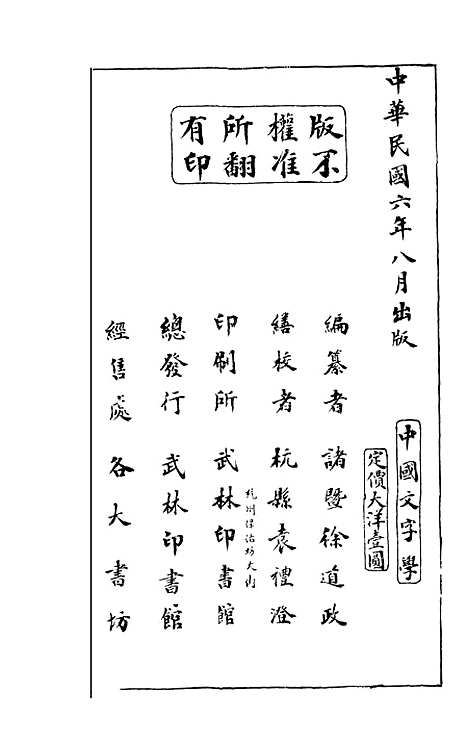 中華民國六年八月出版
中國文字學
定價大洋壹圓
版權所有
不准翻印
編纂者 諸暨徐道政
繕校者 杭縣袁禮澄
杭州保佑坊大街
印刷所 武林印書館
總發行 武林印書館
經售處 各大書坊